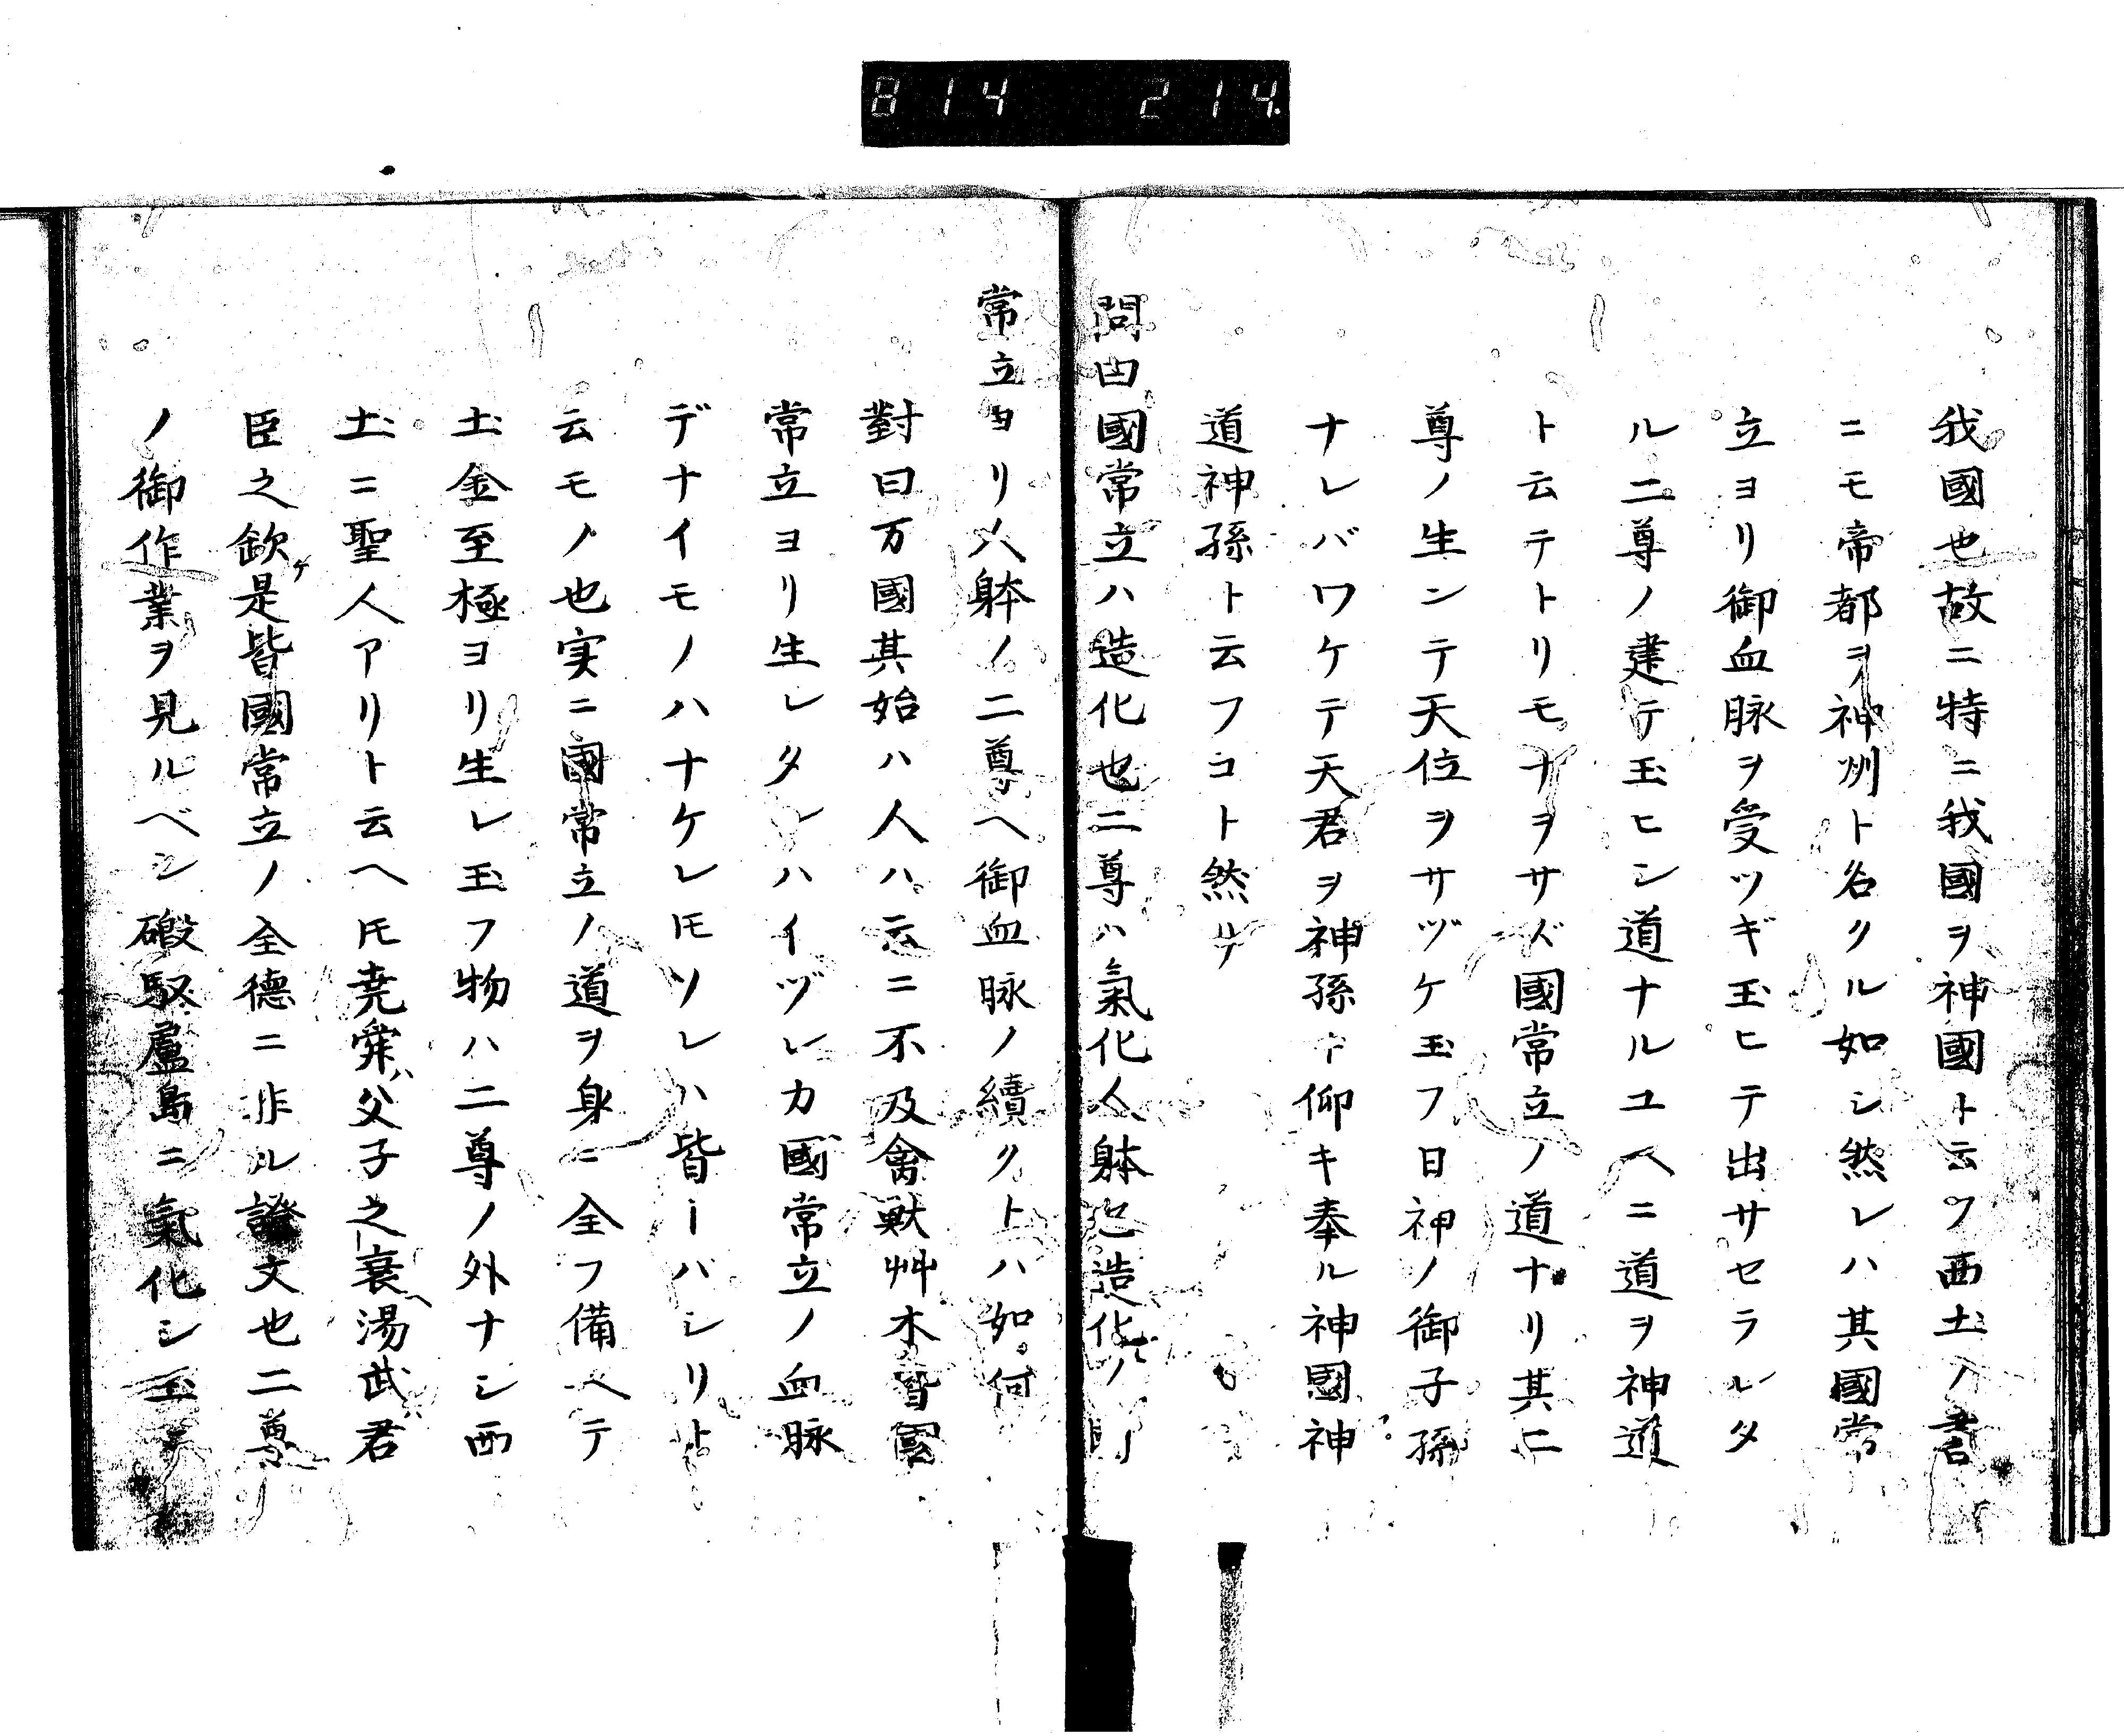 814 214
我國也故ニ特ニ我國ヲ神國ト云フ西土ノ書
ニモ帝都ヲ神州ト名クル如シ然レハ其國常
立ヨリ御血脉ヲ受ツギ玉ヒテ出サセラレタ
ル二尊ノ建テ玉ヒシ道ナルユヘニ道ヲ神道
ト云テトリモナヲサズ國常立ノ道ナリ其二
尊ノ生ンテ天位ヲサヅケ玉フ日神ノ御子孫
ナレバワケテ天君ヲ神孫ト仰キ奉ル神國神
道神孫ト云フコト然リ
問曰國常立ハ造化也二尊ハ氣化人躰也造化ノ國
常立ヨリ人躰ノ二尊ヘ御血脉ノ續クトハ如何
對曰万國其始ハ人ハ云ニ不及禽獣艸木皆國
常立ヨリ生レタレハイヅレカ國常立ノ血脉
デナイモノハナケレ𪜈ソレハ皆一バシリト
云モノ也実ニ國常立ノ道ヲ身ニ全フ備ヘテ
土金至極ヨリ生レ玉フ物ハ二尊ノ外ナシ西
土ニ聖人アリト云ヘ𪜈堯舜ハ父子之衰湯武君
臣之欽ケ是皆國常立ノ全德ニ非ル證文也二尊
ノ御作業ヲ見ルベシ磤馭盧島ニ氣化シ玉